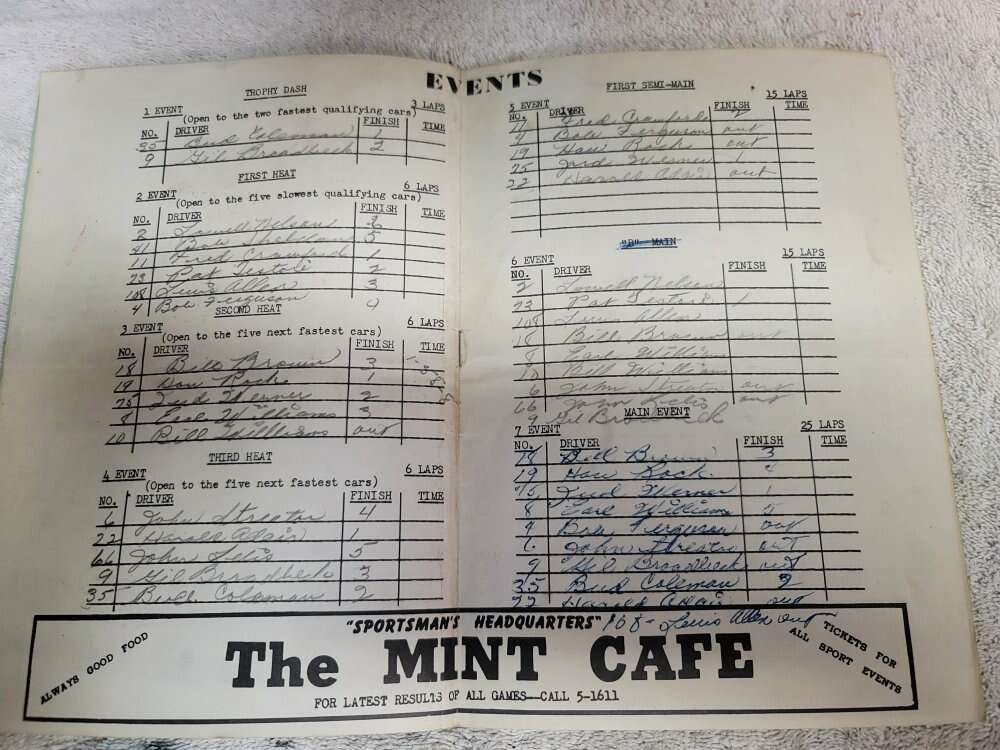 EVENTS
TROPHY DASH
1 EVENT 3 LAPS
(Open to the two fastest qualifying cars)
NO. DRIVER FINISH TIME
35 Bud Coleman 1
9 Gil Broadbeck 2
FIRST HEAT
2 EVENT 6 LAPS
(Open to the five slowest qualifying cars)
NO. DRIVER FINISH TIME
2 Lowell Nelson
41 Bob 5
11 Fred Crawford 1
23 Pat 2
108 Lewis Allen 3
4 Bob Ferguson 4
SECOND HEAT
3 EVENT 6 LAPS
(Open to the five next fastest cars)
NO. DRIVER FINISH TIME
18 Bill Brown 3
19 Rock 1
75 Werner 2
8 Earl Williams 3
10 Bill Williams out
THIRD HEAT
4 EVENT 6 LAPS
(Open to the five next fastest cars)
NO. DRIVER FINISH TIME
6 John Streeter 4
22 Harold Adair 1
66 John 5
9 Gil Broadbeck 3
35 Coleman 2
FIRST SEMI-MAIN
5 EVENT 15 LAPS
NO. DRIVER FINISH TIME
11 Fred Crawford 2
4 Bob Ferguson out
19 out
75 Werner 1
22 Harold Adair out
"B" MAIN
6 EVENT 15 LAPS
NO. DRIVER FINISH TIME
2 Lowell Nelson
23 Pat 1
108 Lewis Allen
18 Bill Brown out
8 Earl Williams
10 Bill Williams
6 John Streeter out
66 John out
9 Gil
MAIN EVENT
7 EVENT 25 LAPS
NO. DRIVER FINISH TIME
18 Bill Brown 3
19 Rock 4
75 Werner 1
8 Earl Williams 5
4 Bob Ferguson out
6 John Streeter out
9 Gil Broadbeck out
35 Bud Coleman 2
22 Harold Adair out
108 - Lewis Allen out
"SPORTSMAN'S HEADQUARTERS"
ALWAYS GOOD FOOD
The MINT CAFE
TICKETS FOR
ALL SPORT EVENTS
FOR LATEST RESULTS OF ALL GAMES--CALL 5-1611